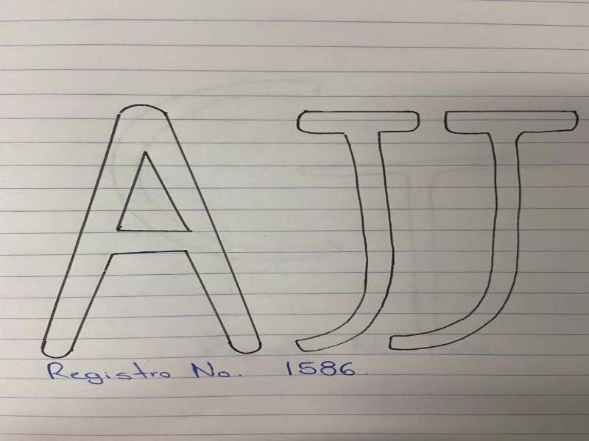 AJJ
Registro No. 1586